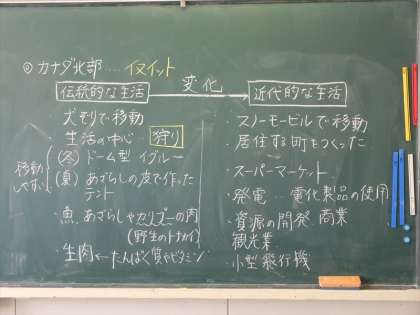 ◎ カナダ北部‥‥イヌイット
伝統的な生活 変化→ 近代的な生活
・犬ぞりで移動
・生活の中心 狩り
移動しやすい
(冬)ドーム型 イグルー
(夏)あざらしの皮で作った
テント
・魚、あざらしやカリブーの肉
(野生のトナカイ)
・生肉←たんぱく質やビタミン
・スノーモービルで移動
・居住する町をつくった
・スーパーマーケット
・発電‥電化製品の使用
・資源の開発 商業
観光業
・小型飛行機